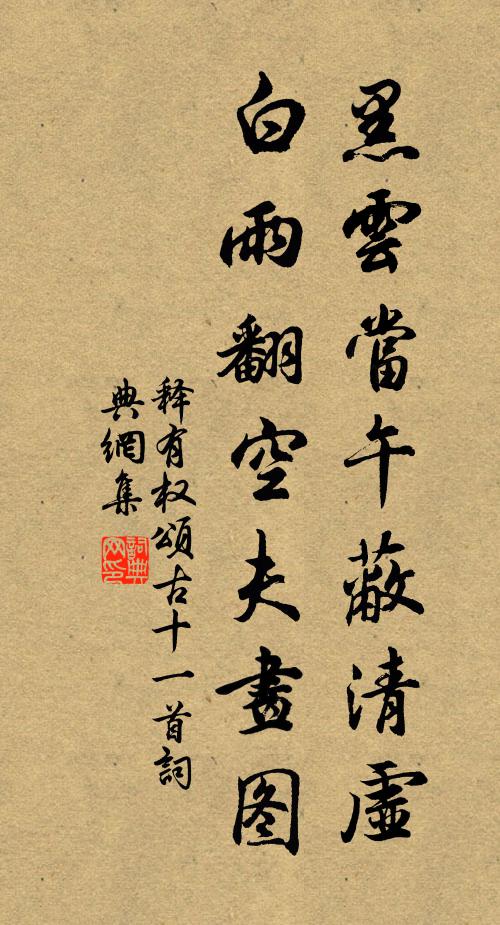 黑雲當午蔽清虛
白雨翻空夫畫图
释有权頌古十一首詞
典網集
詞典
网印